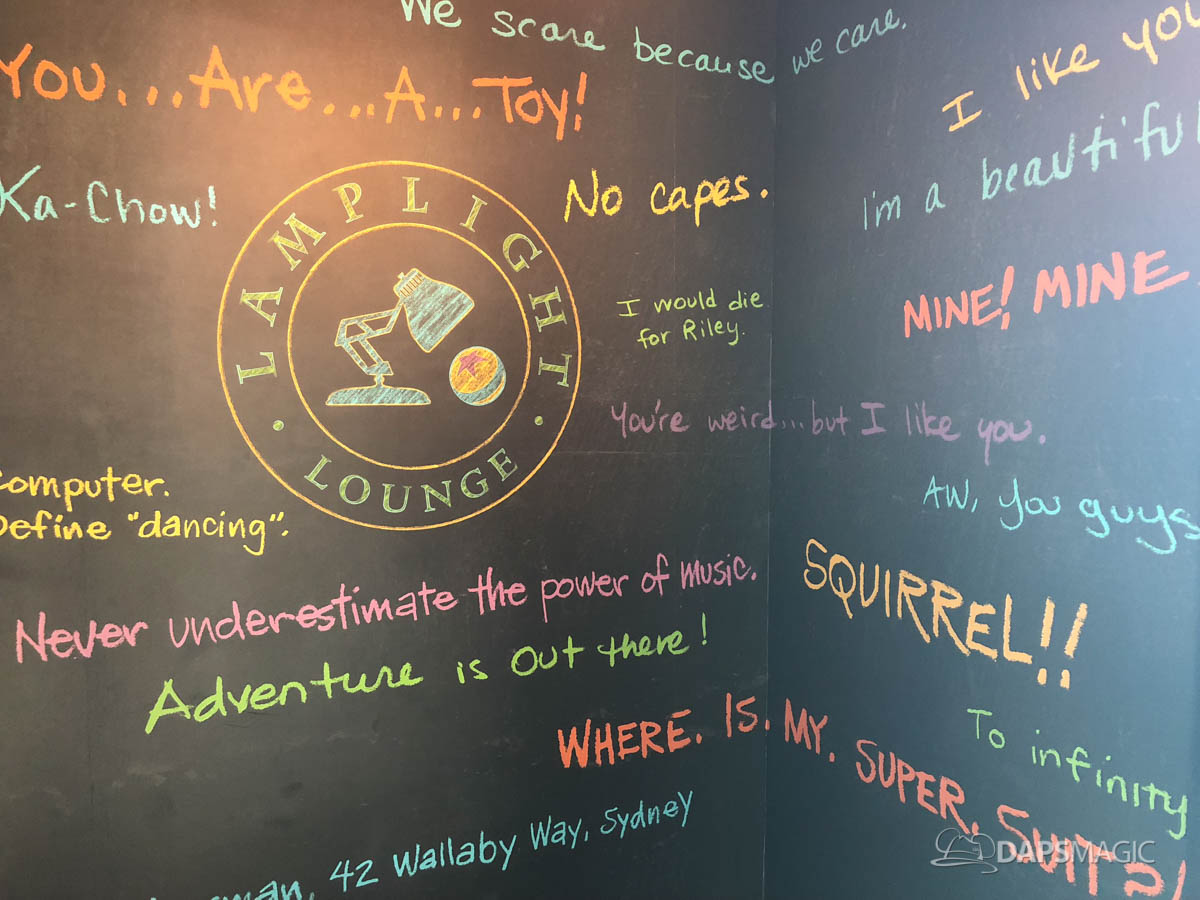 We scare because we care.
You...Are...A...Toy!
I like you
I'm a beautiful
Ka-Chow!
No capes.
LAMPLIGHT
LOUNGE
MINE! MINE
I would die
for Riley.
You're weird...but I like you.
Computer.
Define "dancing".
AW, you guys
SQUIRREL!!
Never underestimate the power of music.
Adventure is out there!
WHERE. IS. MY. SUPER. SUIT?!
To infinity
42 Wallaby Way, Sydney
DAPSMAGIC